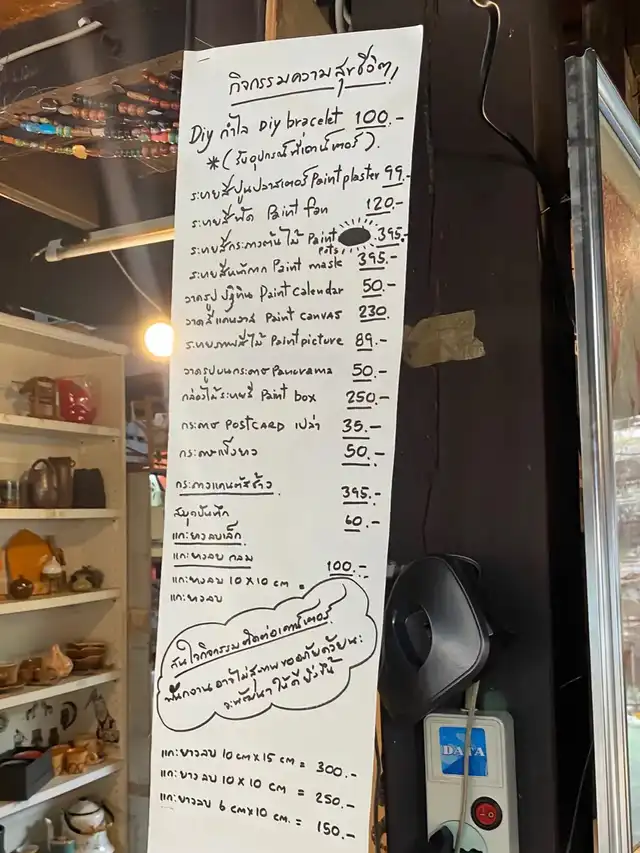 กิจกรรมความสุขชีวิต,
Diy กำไล Diy bracelet 100.-
*(รับอุปกรณ์ที่เคาน์เตอร์).
ระบายสีปูนปลาสเตอร์ Paint plaster 99.-
ระบายสีพัด Paint fan 120.-
ระบายสีกระถางต้นไม้ Paint pots 395.-
ระบายสีหน้ากาก Paint mask 395.-
วาดรูป ปฏิทิน Paint calendar 50.-
วาดสีแคนวาส Paint canvas 230.
ระบายภาพสีไม้ Paint picture 89.-
วาดรูปบนกระดาษ Panorama 50.-
กล่องไม้ระบายสี Paint box 250.-
กระดาษ POSTCARD เปล่า 35.-
กระดาษแข็งขาว 50.-
395.-
สมุดบันทึก 60.-
แกะยางลบเล็ก
แกะยางลบ กลม 100.-
แกะยางลบ 10 x 10 cm =
แกะยางลบ
สนใจกิจกรรมติดต่อเคาน์เตอร์.
พนักงานอาจไม่สุภาพ ขออภัยด้วยนะ
จะพัฒนาให้ดียิ่งขึ้น
แกะยางลบ 10 cm x 15 cm = 300.-
แกะยางลบ 10 x 10 cm = 250.-
แกะยางลบ 6 cm x 10 cm. = 150.-
DATA